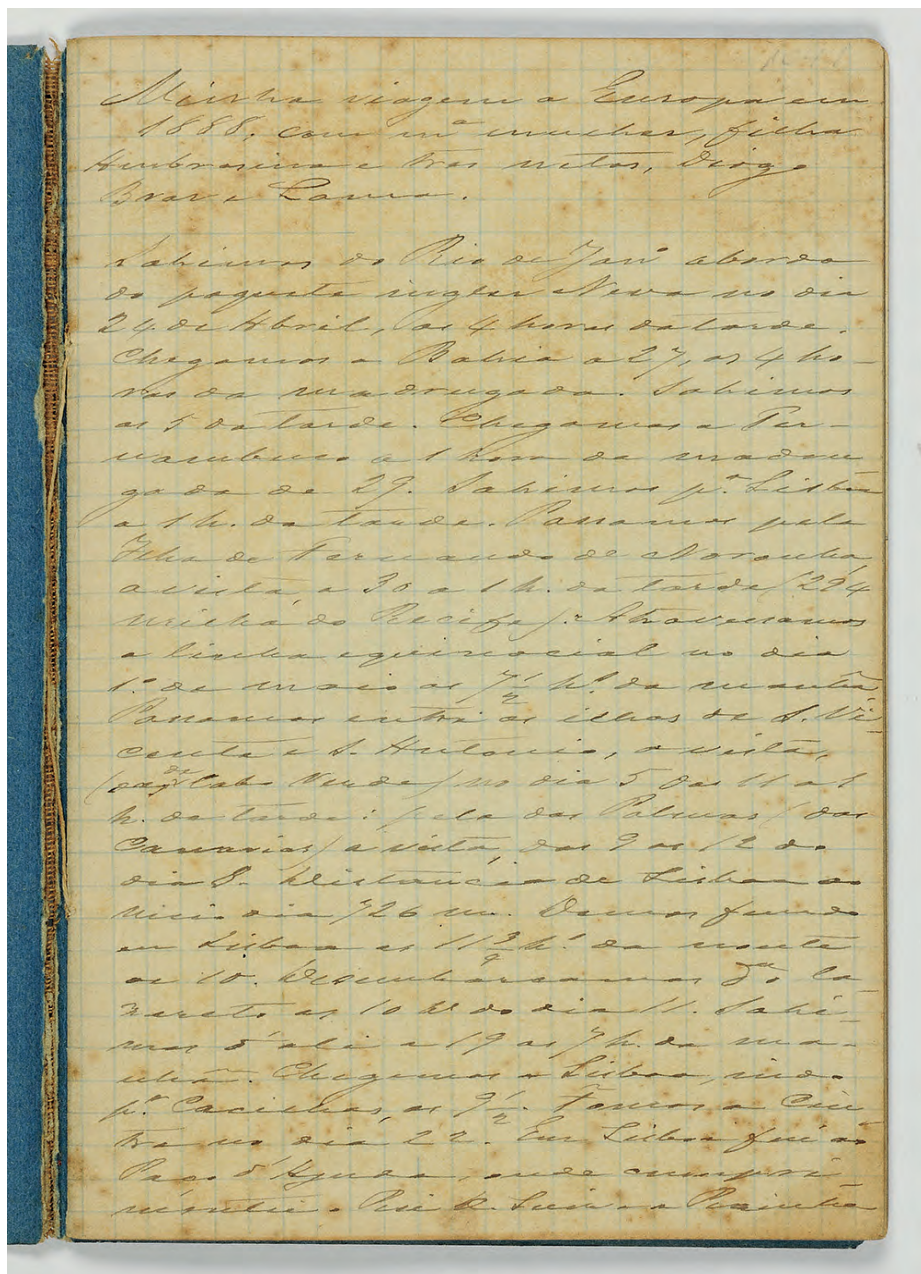 Minha viagem a Europa em
1888, com mª mulher, filha
Ambrosina e tres netos, Diogo
Braz e Laura.
Sahimos do Rio de Janº abordo
do paquete inglez Neva no dia
24 de Abril, as 4 horas da tarde.
Chegamos a Bahia a 27, as 4 ho-
ras da madrugada. Sahimos
as 5 da tarde. Chegamos a Per-
nambuco a 1 hora da madru
gada de 29. Sahimos pª Lisboa
a 1 h. da tarde. Passamos pela
Ilha de Fernando de Noronha,
a vista, a 30 a 1 h. da tarde (294
milhas do Recife). Atravessamos
a linha equinocial no dia
1º de maio as 7 1/2 hs. da manhã
Passamos entre as ilhas de S. Vi
cente e S. Antonio, a vista,
(de Cabo Verde) no dia 5 das 11 a 1
h. da tarde: pela das Palmas (das
Canarias) a vista, das 9 as 12 do
dia 8. Distancia de Lisboa ao
meio dia 726 m. Demos fundo
em Lisboa as 11 h. da noute
de 10. Desembarcamos no La
zareto as 10 do dia 11. Sahi-
mos d'ali a 19 as 7 h. da ma-
nhã. Chegamos a Lisboa, indo
pª Cacilhas, as 9 1/2. Fomos a Cin
tra no dia 22. Em Lisboa fui ao
Paço d'Ajuda, onde cumpri
mentei o Rei D. Luiz e a Rainha